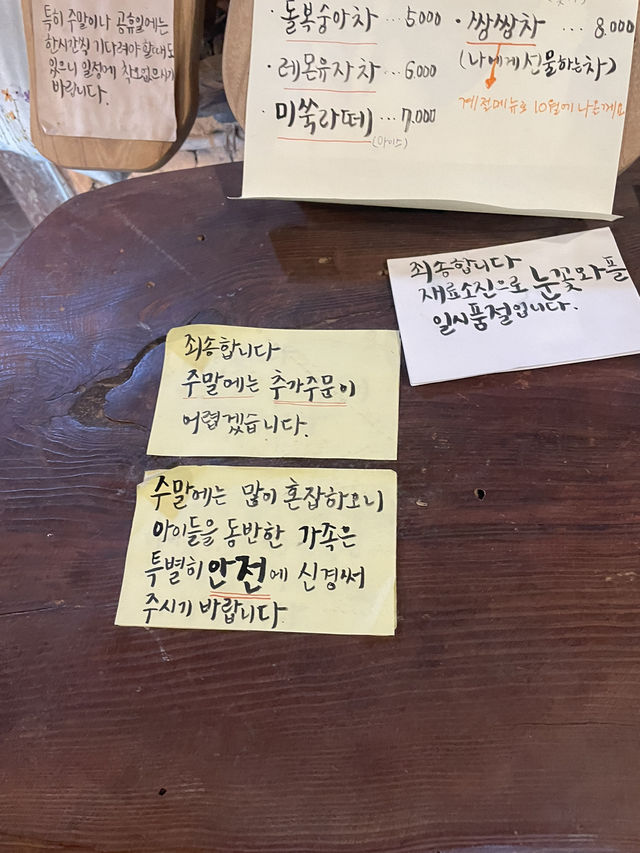 특히 주말이나 공휴일에는
한시간씩 기다려야 할때도
있으니 일정에 착오없으시기
바랍니다.
· 돌복숭아차 ... 5000
· 레몬유자차 ... 6.000
· 미쑥라떼 ... 7.000
(아이스)
· 쌍쌍차 ... 8.000
(나에게 선물하는차)
계절메뉴로 10월에 나올께요
죄송합니다
재료소진으로 눈꽃와플
일시품절입니다.
죄송합니다
주말에는 추가주문이
어렵겠습니다.
주말에는 많이 혼잡하오니
아이들을 동반한 가족은
특별히 안전에 신경써
주시기 바랍니다.